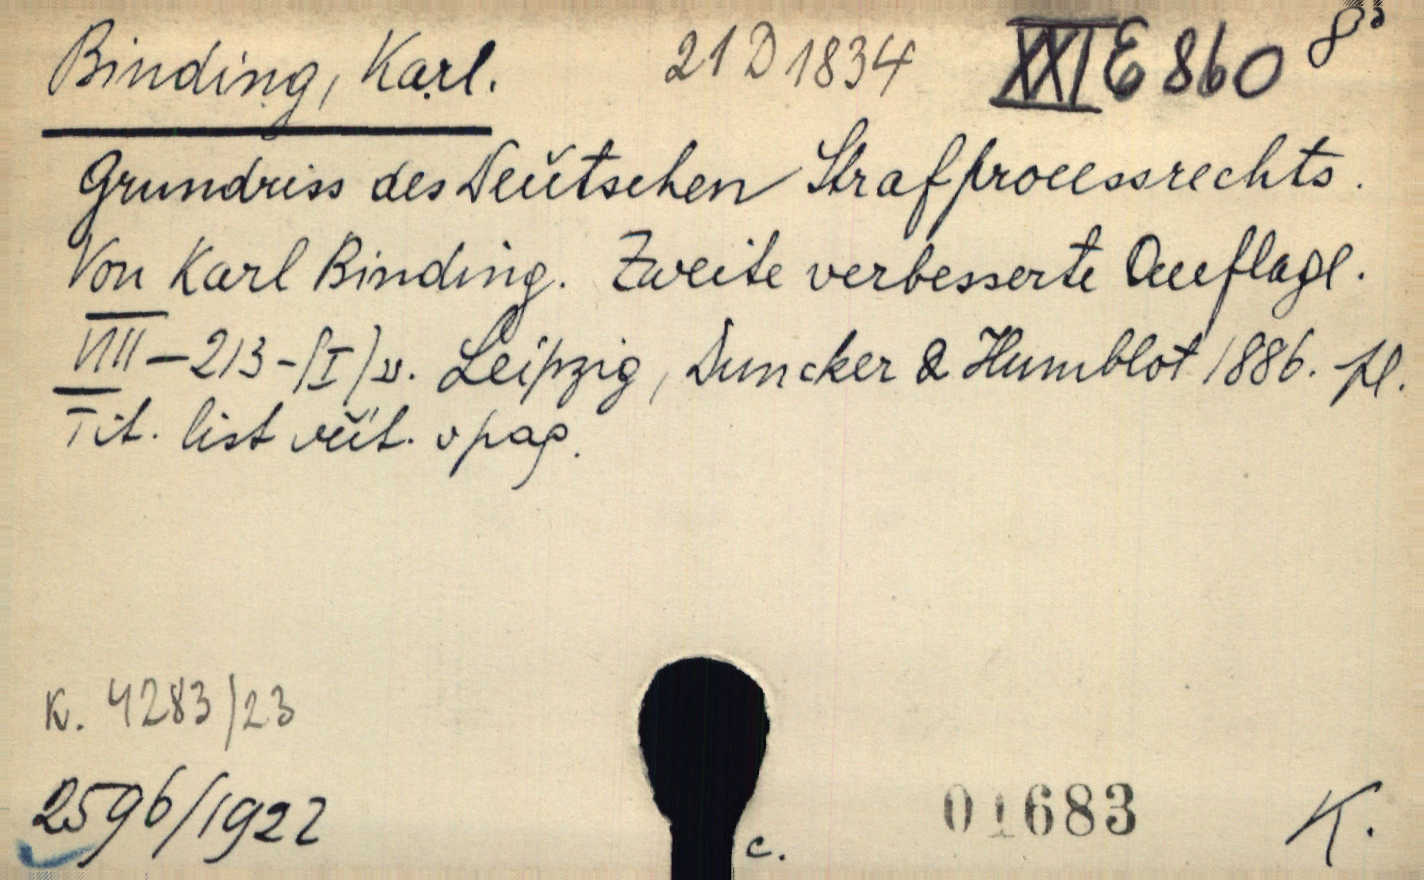 Binding, Karl. 21 D 1834 XXI E 860 8°
Grundriss des Deutschen Strafprocessrechts.
Von Karl Binding. Zweite verbesserte Auflage.
VIII - 213 - [I] s. Leipzig, Duncker & Humblot 1886. pl.
Tit. list včít. v pag.
K. 4283/23
2596/1922
c.
01683
K.